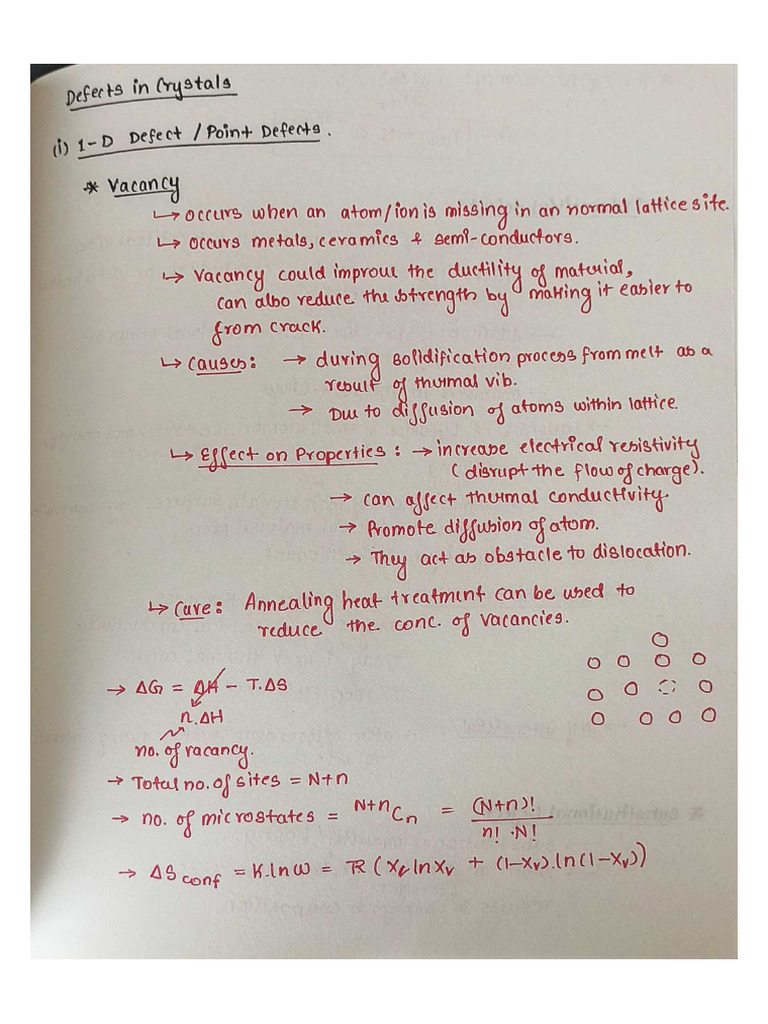 Defects in Crystals
(i) 1-D Defect / Point Defects.
* Vacancy
↳ occurs when an atom/ion is missing in an normal lattice site.
↳ occurs metals, ceramics & semi-conductors.
↳ Vacancy could improve the ductility of material,
can also reduce the strength by making it easier to
from crack.
↳ Causes: → during solidification process from melt as a
result of thermal vib.
→ Due to diffusion of atoms within lattice.
↳ Effect on Properties: → increase electrical resistivity
(disrupt the flow of charge).
→ can affect thermal conductivity.
→ Promote diffusion of atom.
→ They act as obstacle to dislocation.
↳ Cure: Annealing heat treatment can be used to
reduce the conc. of vacancies.
→ ΔG = ΔH - T.ΔS
n.ΔH
no. of vacancy.
→ Total no. of sites = N+n
→ no. of microstates = ᴺ⁺ⁿCₙ = (N+n)! / n! · N!
→ ΔS conf = K.ln ω = R (Xᵥ ln Xᵥ + (1-Xᵥ).ln(1-Xᵥ))